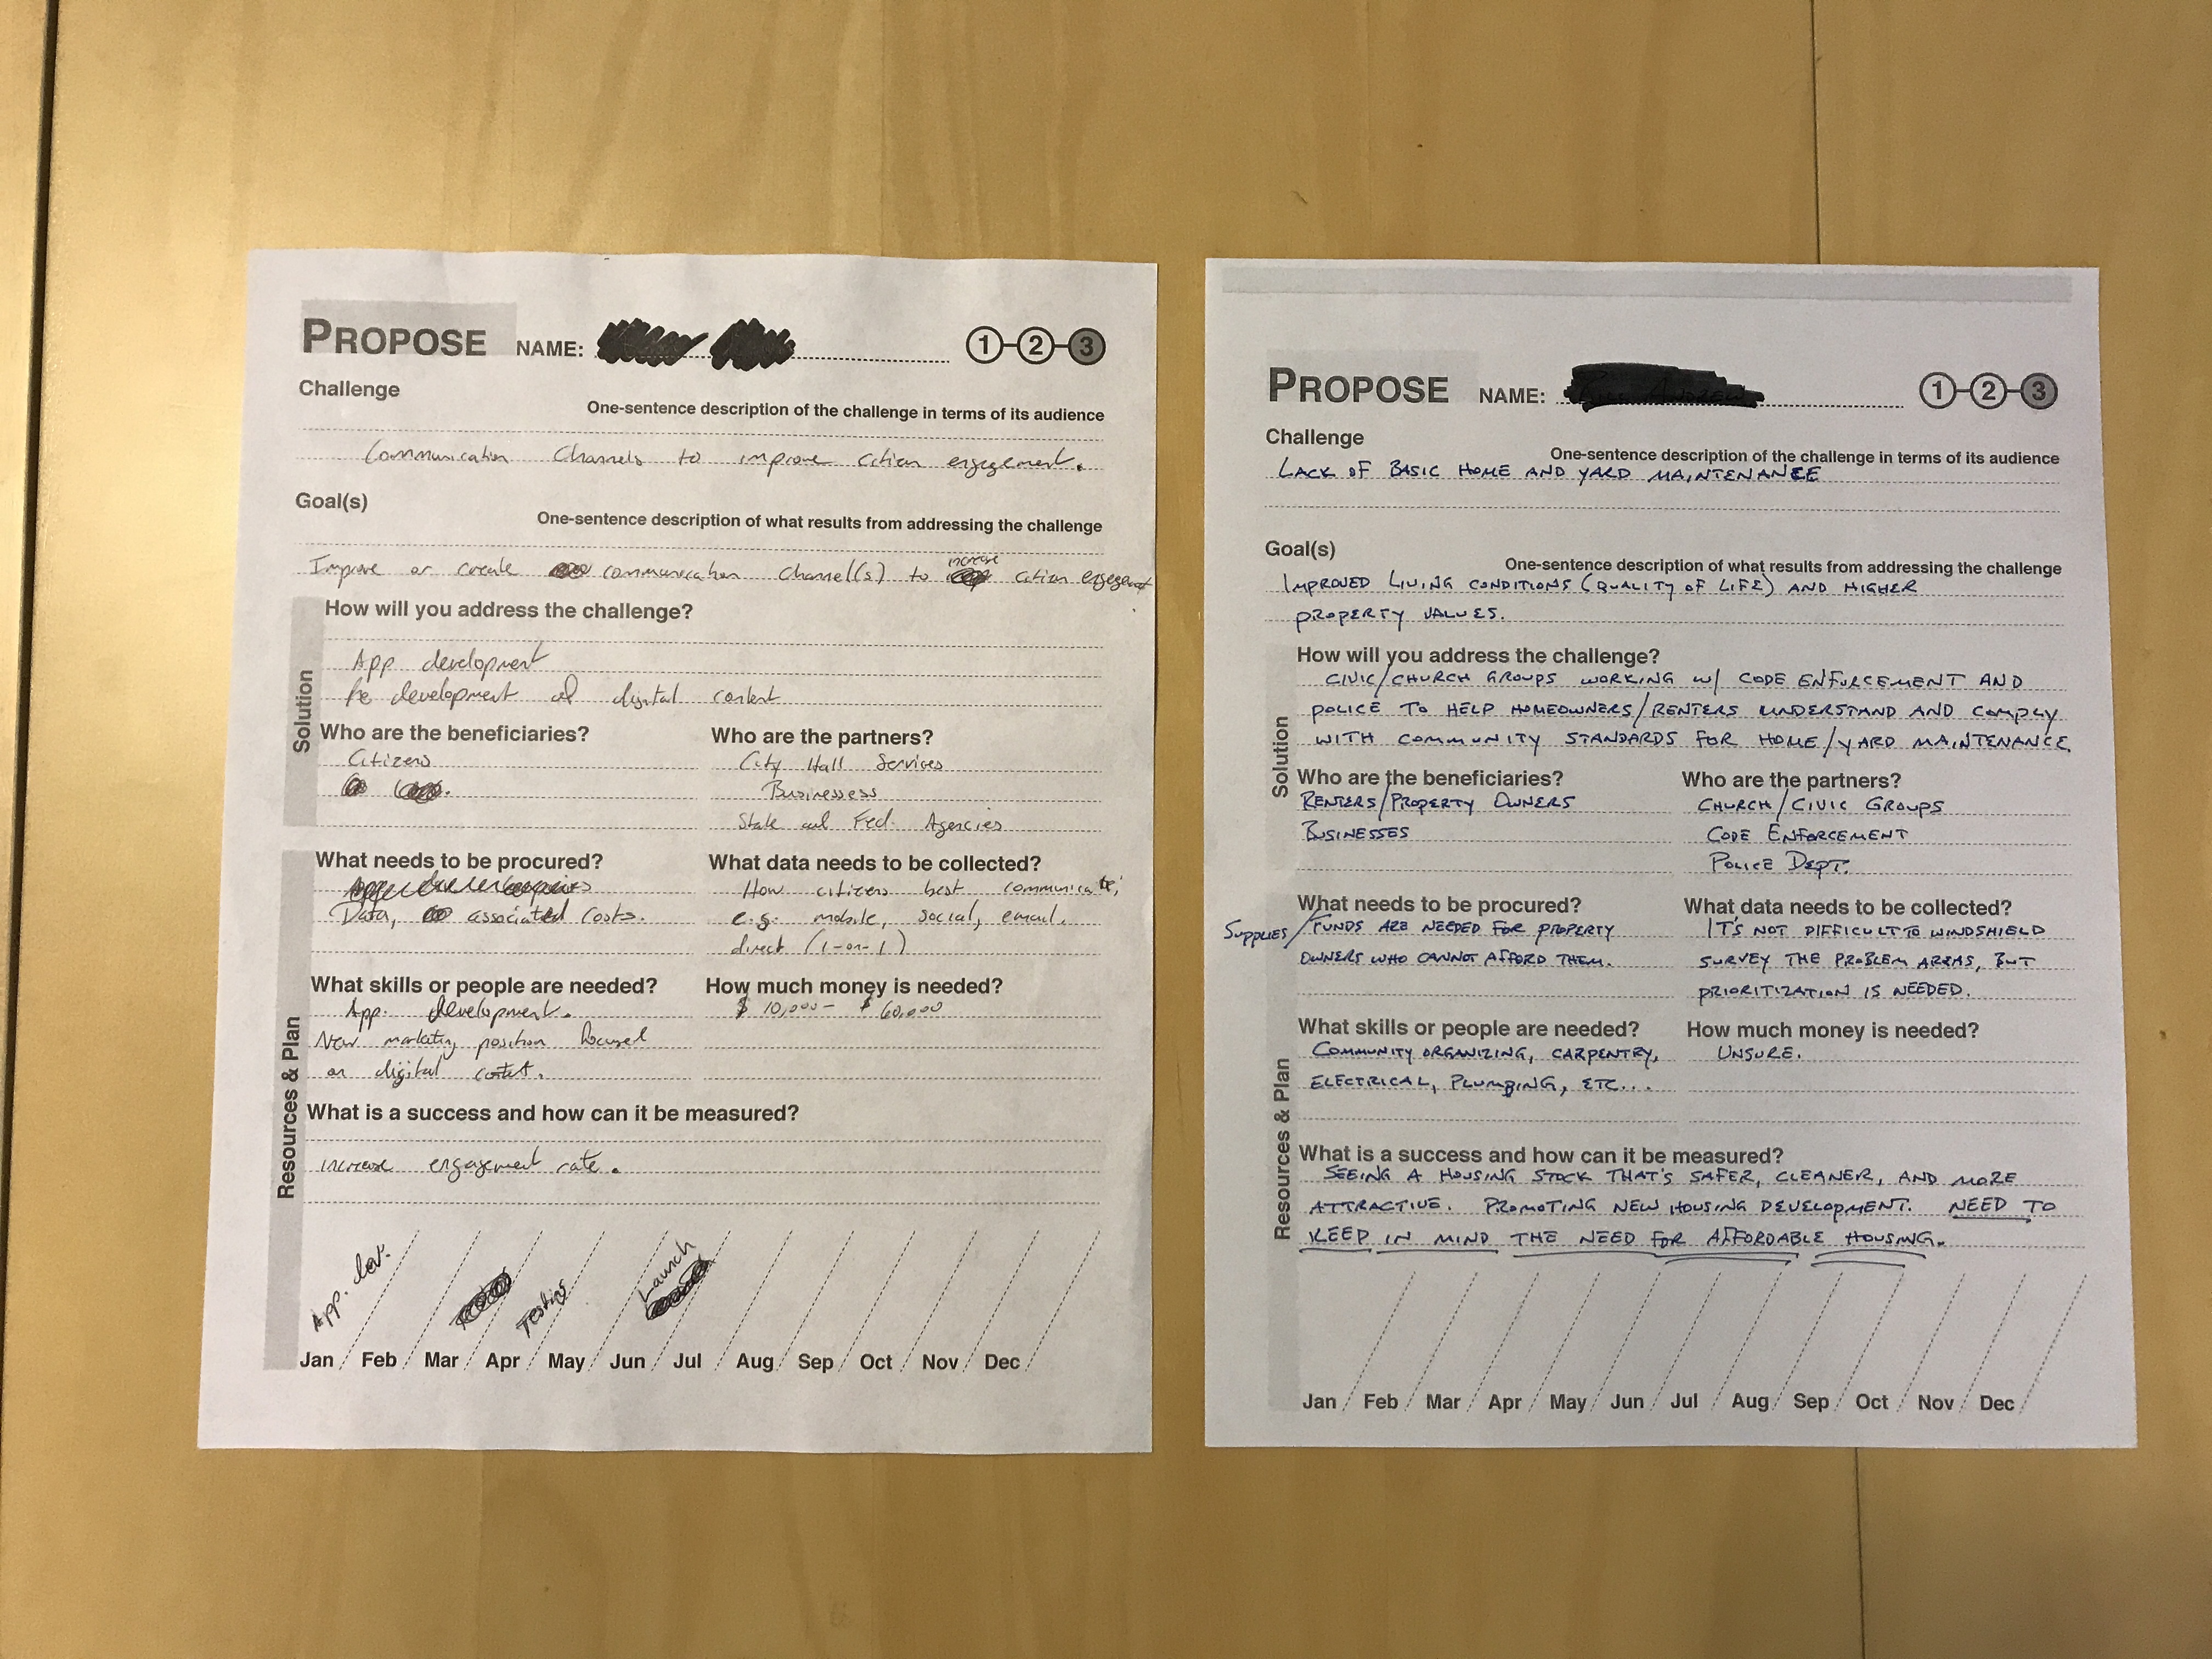 PROPOSE NAME:
1 2 3
Challenge
One-sentence description of the challenge in terms of its audience
Communication Channels to improve citizen engagement.
Goal(s)
One-sentence description of what results from addressing the challenge
increase
Improve or create communication channel(s) to citizen engagement
Solution
How will you address the challenge?
App development
development of digital content
Who are the beneficiaries?
Citizens
Who are the partners?
City Hall Services
Businessess
State and Fed. Agencies
Resources & Plan
What needs to be procured?
Data, associated costs.
What data needs to be collected?
How citizens best communicate;
e.g. mobile, social, email,
direct (1-on-1)
What skills or people are needed?
App. development.
New marketing position focused
on digital content.
How much money is needed?
$ 10,000 - $ 60,000
What is a success and how can it be measured?
increase engagement rate.
App. dev. Testing Launch
Jan Feb Mar Apr May Jun Jul Aug Sep Oct Nov Dec
PROPOSE NAME:
1 2 3
Challenge
One-sentence description of the challenge in terms of its audience
LACK OF BASIC HOME AND YARD MAINTENANCE
Goal(s)
One-sentence description of what results from addressing the challenge
IMPROVED LIVING CONDITIONS (QUALITY OF LIFE) AND HIGHER
PROPERTY VALUES.
Solution
How will you address the challenge?
CIVIC/CHURCH GROUPS WORKING W/ CODE ENFORCEMENT AND
POLICE TO HELP HOMEOWNERS/RENTERS UNDERSTAND AND COMPLY
WITH COMMUNITY STANDARDS FOR HOME/YARD MAINTENANCE.
Who are the beneficiaries?
RENTERS/PROPERTY OWNERS
BUSINESSES
Who are the partners?
CHURCH/CIVIC GROUPS
CODE ENFORCEMENT
POLICE DEPT.
Resources & Plan
What needs to be procured?
SUPPLIES/FUNDS ARE NEEDED FOR PROPERTY
OWNERS WHO CANNOT AFFORD THEM.
What data needs to be collected?
IT'S NOT DIFFICULT TO WINDSHIELD
SURVEY THE PROBLEM AREAS, BUT
PRIORITIZATION IS NEEDED.
What skills or people are needed?
COMMUNITY ORGANIZING, CARPENTRY,
ELECTRICAL, PLUMBING, ETC...
How much money is needed?
UNSURE.
What is a success and how can it be measured?
SEEING A HOUSING STOCK THAT'S SAFER, CLEANER, AND MORE
ATTRACTIVE. PROMOTING NEW HOUSING DEVELOPMENT. NEED TO
KEEP IN MIND THE NEED FOR AFFORDABLE HOUSING.
Jan Feb Mar Apr May Jun Jul Aug Sep Oct Nov Dec